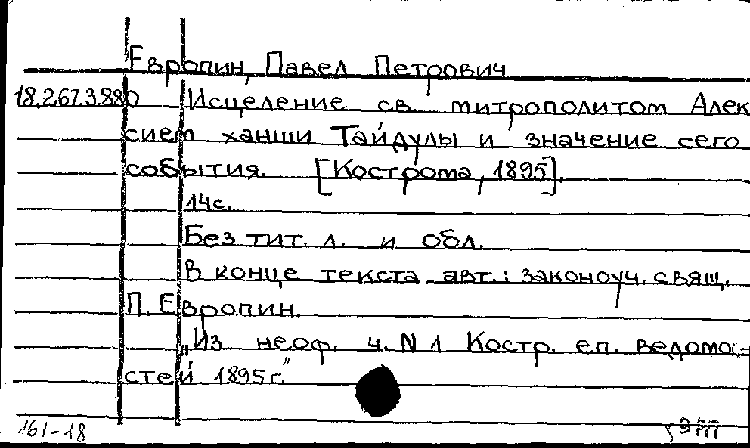 Европин, Павел Петрович
18.267.3.880 Исцеление св. митрополитом Алек
сием ханши Тайдулы и значение сего
события. [Кострома, 1895].
14с.
Без тит. л. и обл.
В конце текста авт.: законоуч. свящ.
П. Европин.
„Из неоф. ч. N 1 Костр. еп. ведомо-
стей 1895 г."
161-18